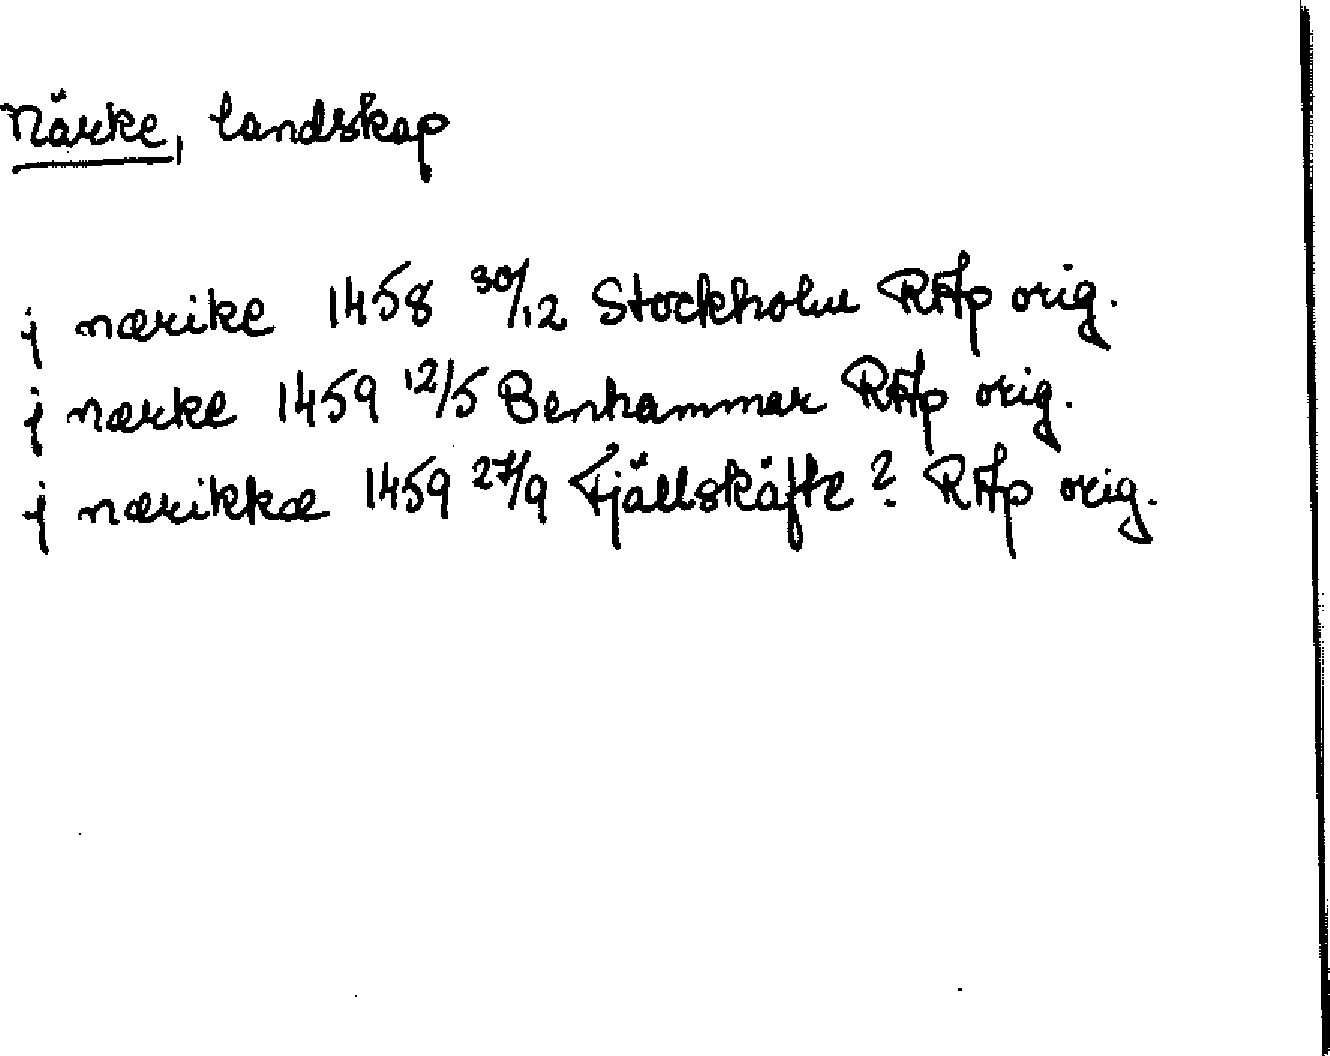 Närke, landskap
j nærike 1458 30/12 Stockholm RAp orig.
j nærke 1459 12/5 Benhammar RAp orig.
j nærikkæ 1459 27/9 Fjällskäfte? RAp orig.